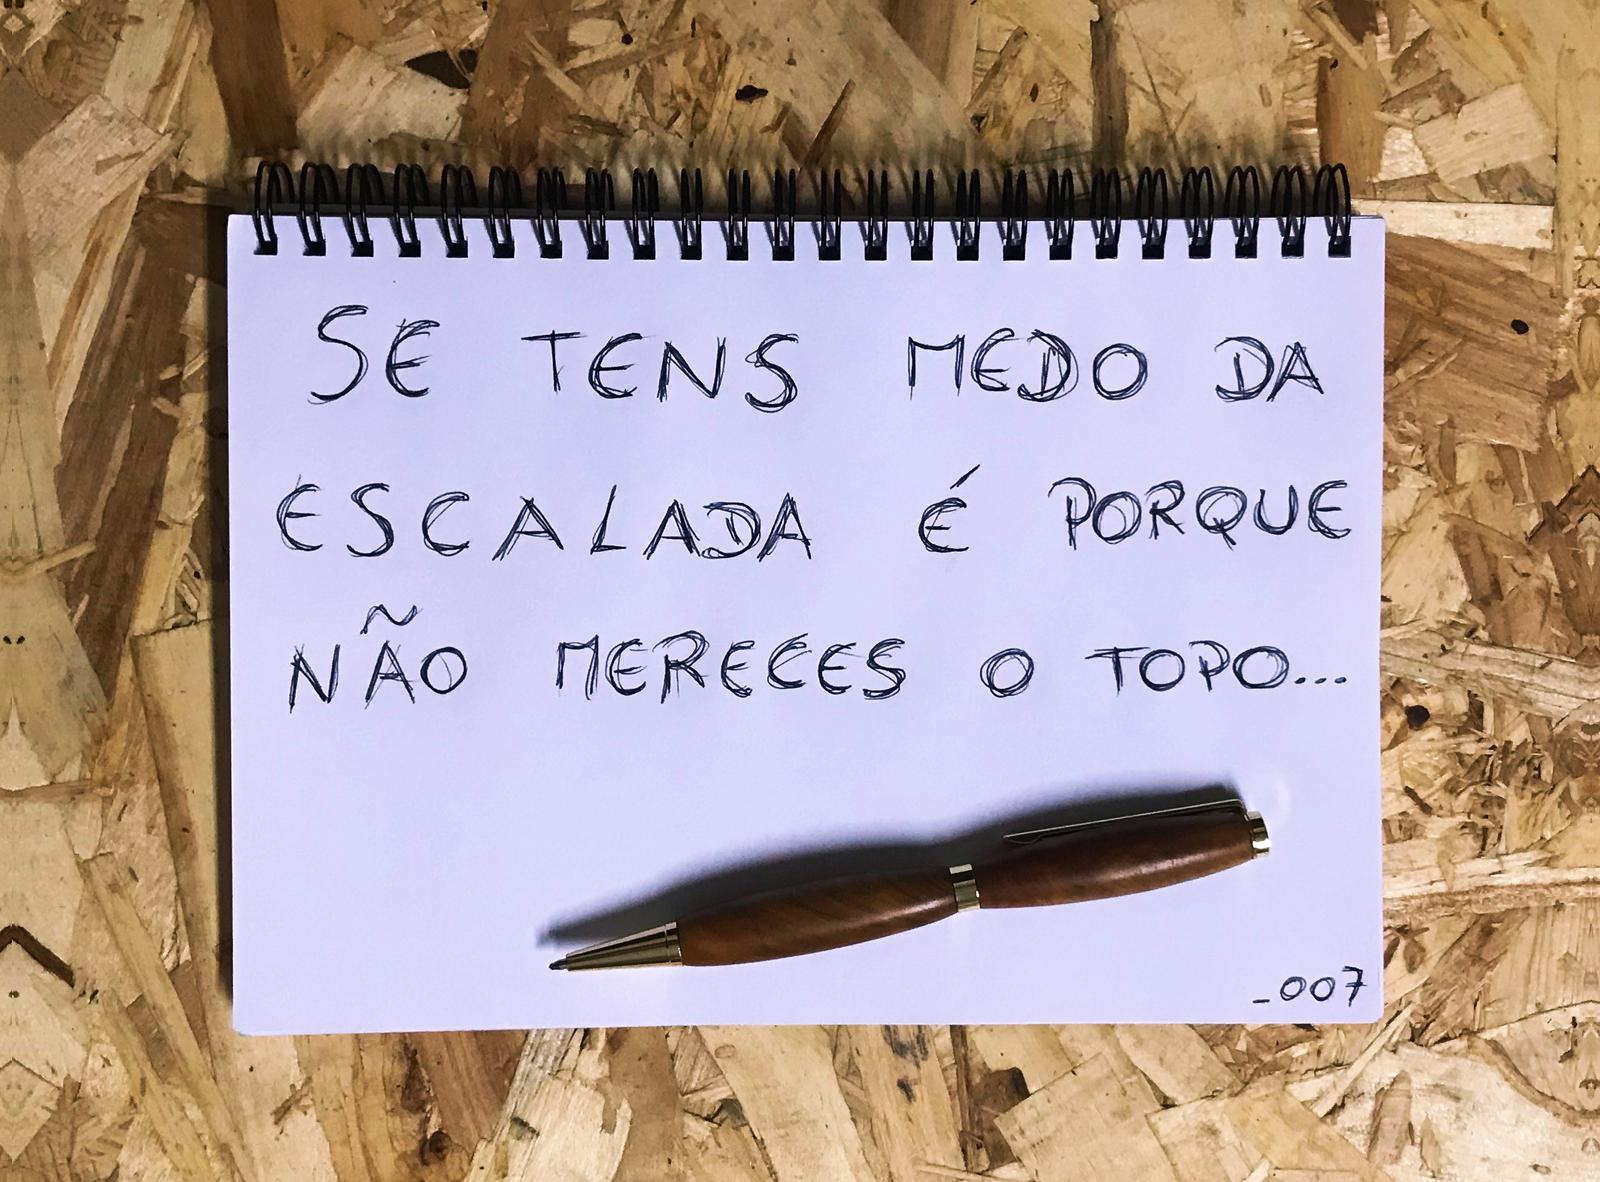 SE TENS MEDO DA
ESCALADA É PORQUE
NÃO MERECES O TOPO...
_007